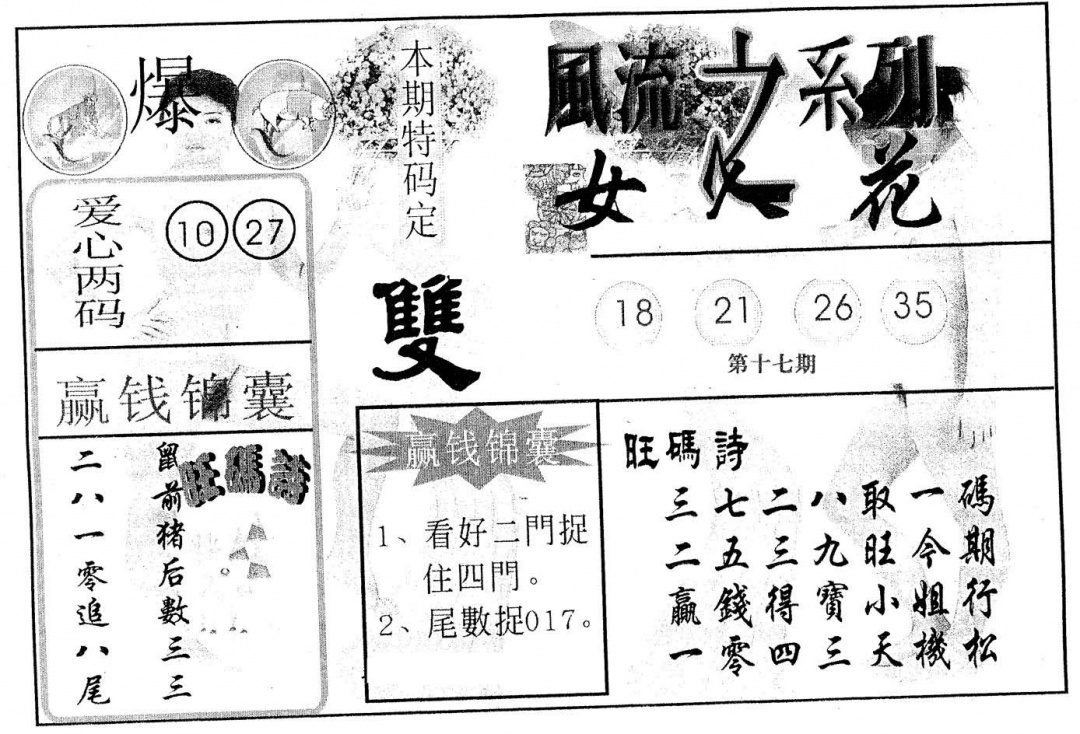 爆
爱心两码
10 27
赢钱锦囊
旺碼詩
鼠前猪后數三三
二八一零追八尾
本期特码定
雙
風流之系列
女 花
18 21 26 35
第十七期
赢钱锦囊
1、看好二門捉
住四門。
2、尾數捉017。
旺碼詩
三七二八取一碼
二五三九旺今期
贏錢得寶小姐行
一零四三天機松